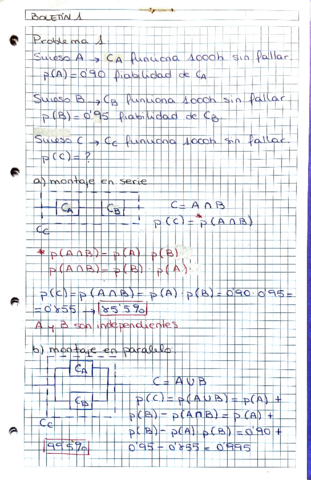 BOLETÍN 1
Problema 1
Suceso A → CA funciona 1000h sin fallar
p(A)=0'90 fiabilidad de CA
Suceso B → CB funciona 1000h sin fallar
p(B)=0'95 fiabilidad de CB
Suceso C → CC funciona 1000h sin fallar
p(C)=?
a) montaje en serie
CA CB
CC
C=A∩B
p(C)=p(A∩B)
* p(A∩B)=p(A)·p(B)
p(A∩B)=p(B)·p(A)
p(C)=p(A∩B)=p(A)·p(B)=0'90·0'95=
=0'855 → 85'5%
A y B son independientes
b) montaje en paralelo
CA
CB
CC
C=A∪B
p(C)=p(A∪B)=p(A)+
p(B)-p(A∩B)=p(A)+
p(B)-p(A)·p(B)=0'90+
0'95-0'855=0'995
99'5%